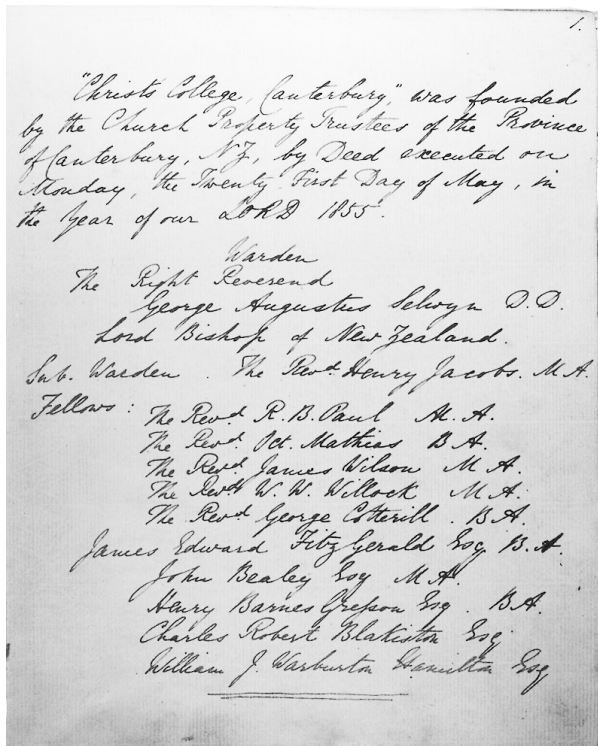 1.
"Christ's College, Canterbury," was founded
by the Church Property Trustees of the Province
of Canterbury, N.Z., by Deed executed on
Monday, the Twenty First Day of May, in
the Year of our LORD 1855.
Warden
The Right Reverend
George Augustus Selwyn D.D.
Lord Bishop of New Zealand.
Sub. Warden. The Revd. Henry Jacobs. M.A.
Fellows: The Revd R. B. Paul M.A.
The Revd Oct. Mathias B.A.
The Revd James Wilson M.A.
The Revd W. W. Willock M.A.
The Revd George Cotterill. B.A.
James Edward FitzGerald Esq B.A.
John Bealey Esq M.A.
Henry Barnes Gresson Esq. B.A.
Charles Robert Blakiston Esq.
William J. Warburton Hamilton Esq